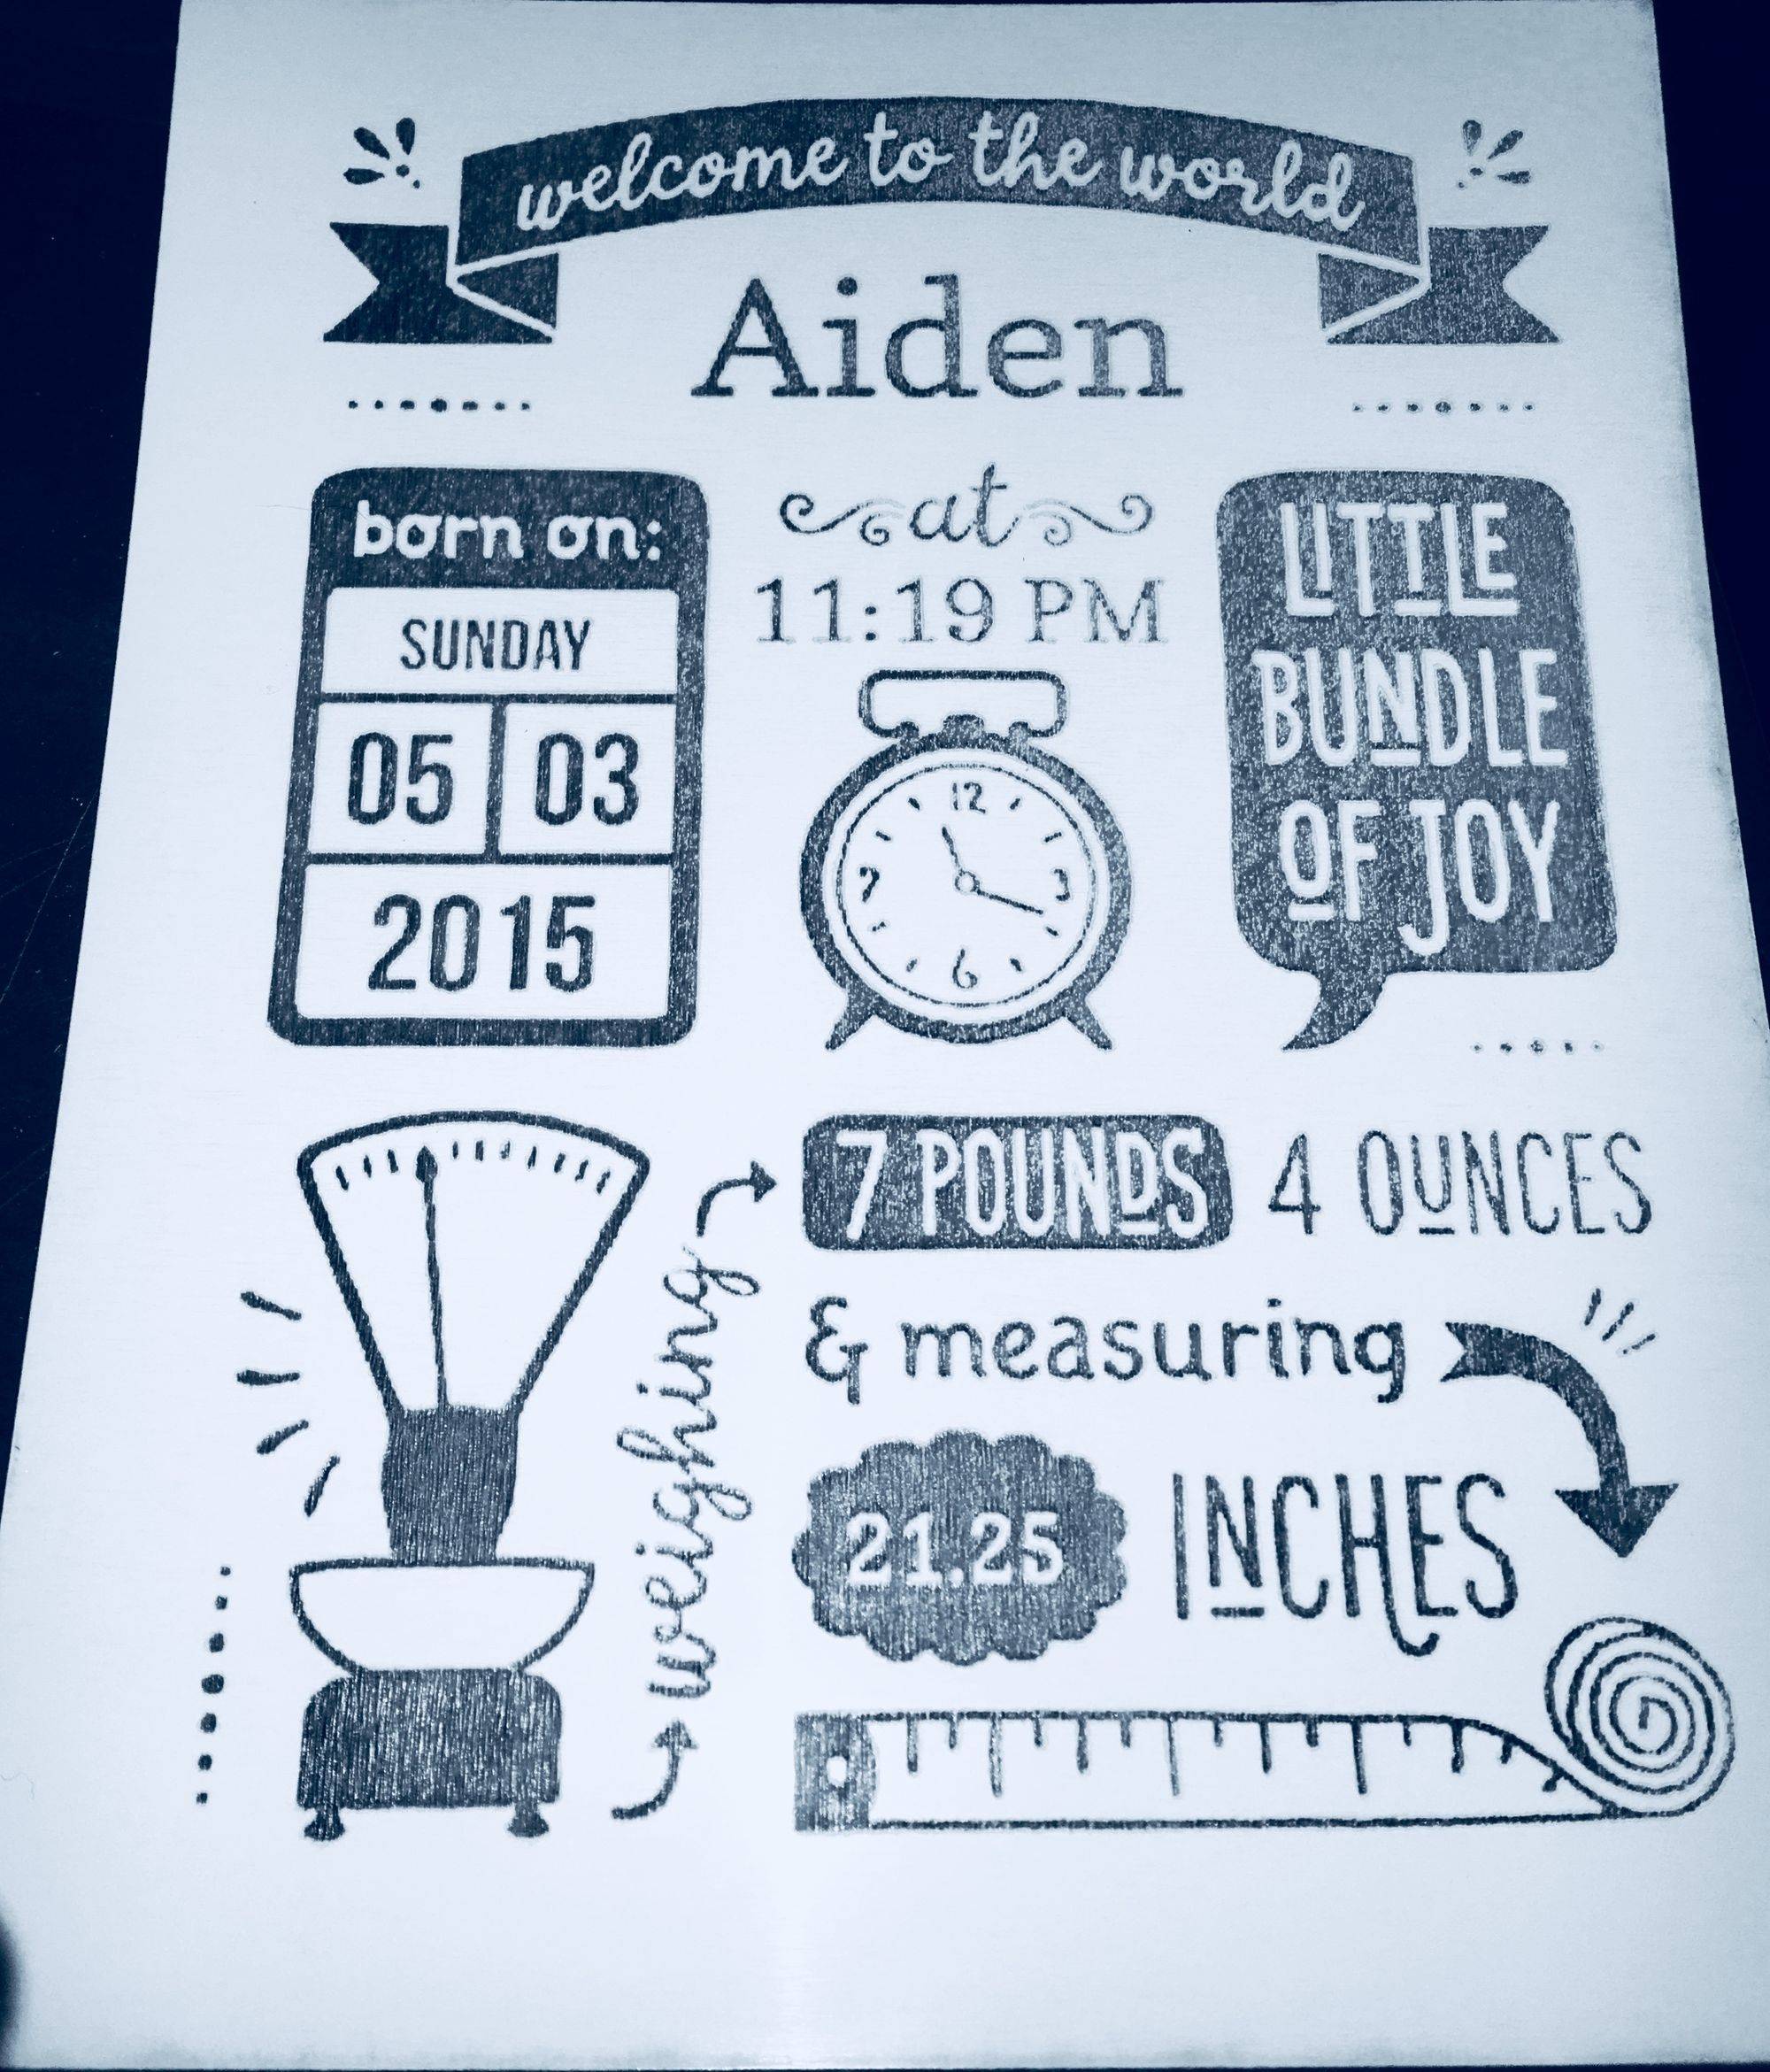 welcome to the world
Aiden
born on:
SUNDAY
05 03
2015
at
11:19 PM
12
3
6
9
LITTLE
BUNDLE
OF JOY
weighing
7 POUNDS 4 OUNCES
& measuring
21.25 INCHES